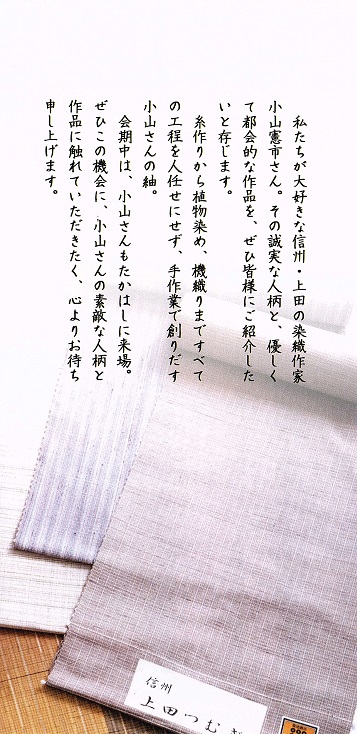 私たちが大好きな信州・上田の染織作家
小山憲市さん。その誠実な人柄と、優しく
て都会的な作品を、ぜひ皆様にご紹介した
いと存じます。
糸作りから植物染め、機織りまですべて
の工程を人任せにせず、手作業で創りだす
小山さんの紬。
会期中は、小山さんもたかはしに来場。
ぜひこの機会に、小山さんの素敵な人柄と
作品に触れていただきたく、心よりお待ち
申し上げます。
信州
上田つむぎ